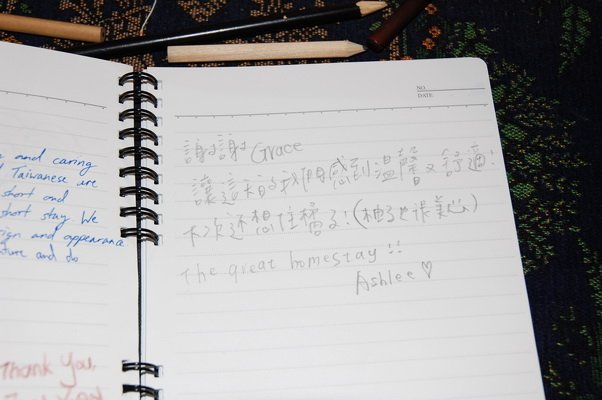 and caring
Taiwanese are
short and
short stay. We
ign and appearance
ture and do
Thank You,
NO.
DATE
謝謝 Grace
讓這 我們感到溫馨又舒適!
下次還想住 了!(柚子也很美 )
The great homestay !!
Ashlee ♡